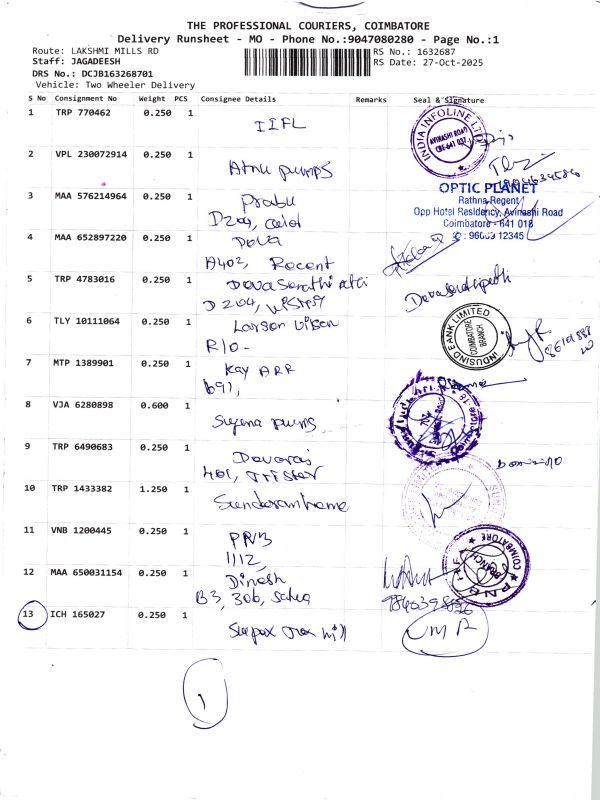 THE PROFESSIONAL COURIERS, COIMBATORE
Delivery Runsheet - MO - Phone No.:9047080280 - Page No.:1
Route: LAKSHMI MILLS RD RS No.: 1632687
Staff: JAGADEESH RS Date: 27-Oct-2025
DRS No.: DCJB163268701
Vehicle: Two Wheeler Delivery
S No Consignment No Weight PCS Consignee Details Remarks Seal & Signature
1 TRP 770462 0.250 1
IIFL
INDIA INFOLINE LTD
AVINASHI ROAD
CBE-641 037
2 VPL 230072914 0.250 1
pumps
3 MAA 576214964 0.250 1
Prabu
D204,
OPTIC PLANET
Rathna Regent
Opp Hotel Residency, Avinashi Road
Coimbatore - 641 018
: 96003 12345
4 MAA 652897220 0.250 1
Deva
A402, Recent
5 TRP 4783016 0.250 1
Devasenathipathi
D204,
Devasenathipathi
6 TLY 10111064 0.250 1
Larsen
R10-
INDUSIND BANK LIMITED
COIMBATORE
BRANCH
7 MTP 1389901 0.250 1
Kay ARR
691,
8 VJA 6280898 0.600 1
Suguna pumps
9 TRP 6490683 0.250 1
Devaraj
401, Tristar
10 TRP 1433382 1.250 1
Sundaram home
11 VNB 1200445 0.250 1
PNB
1112,
COIMBATORE
BRANCH
12 MAA 650031154 0.250 1
Dinesh
B3, 306,
13 ICH 165027 0.250 1
UMA
1